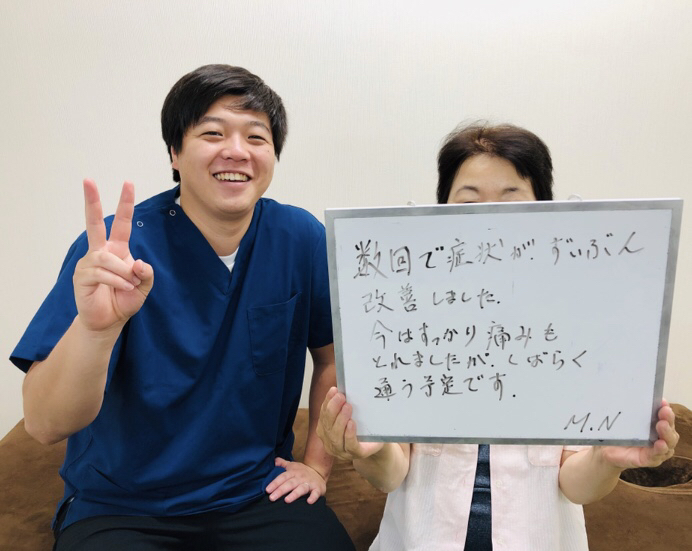 数回で症状が、ずいぶん
改善しました。
今はすっかり痛みも
とれましたが、しばらく
通う予定です。
M.N